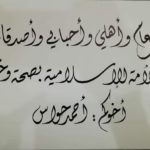 عام وأهلي وأحبابي وأصدقا
لأمة الإسلامية بصحة وخ
أخوكم: أحمد حواس